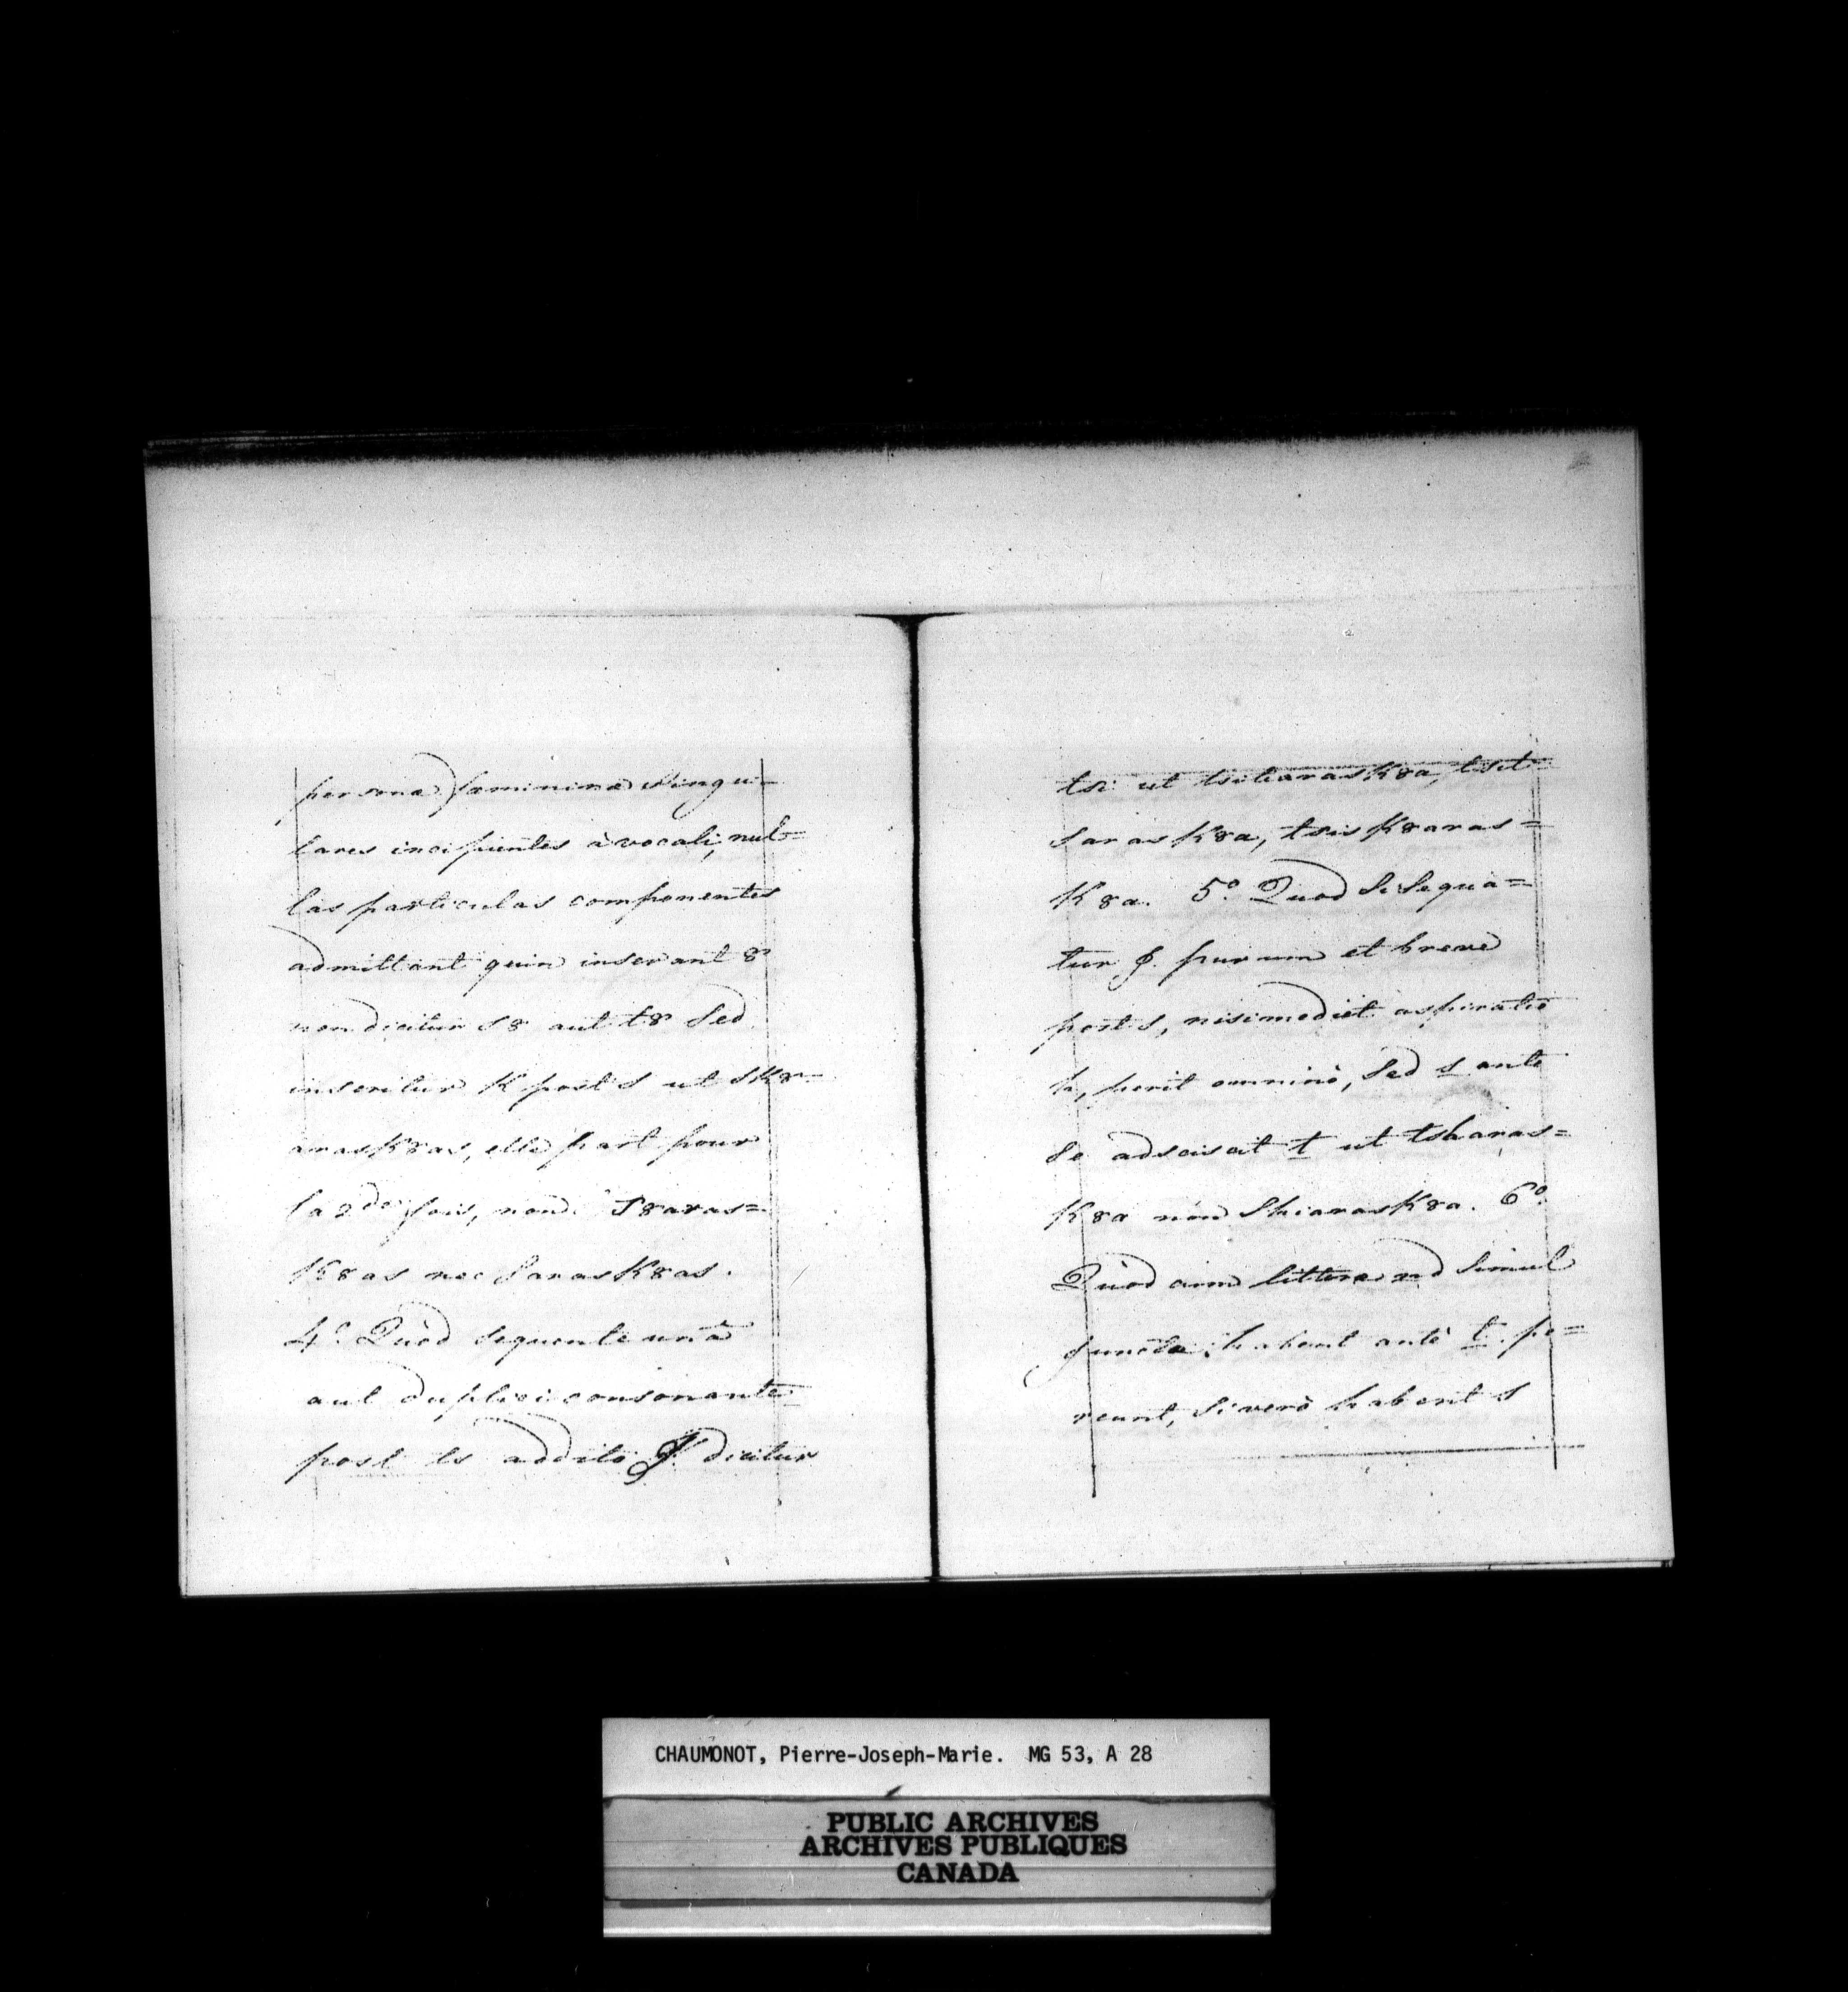 personæ fæmininæ singu-
lares incipientes à vocali, nul=
las particulas componentes
admittant quin inserant 8
non dicitur s8 aut t8 sed
inseritur K post s ut sK8-
arasK8as, elle part pour
la 2de fois, non s8aras=
K8as nec sarasK8as.
4° Quòd sequente unâ
aut duplici consonante
post ts addito J. dicitur
tsi ut tsiharasK8a, tsit-
sarasK8a, tsisK8aras=
K8a. 5° Quod si sequa=
tur J. purum et breve
post s, nisi mediet aspiratio
h, perit omninò, sed s ante
se adsciscit t ut tsharas=
K8a non shiarasK8a. 6°
Quòd cum litteræ nd simul
junctæ habent antè t. pe=
reunt, si verò habent s
CHAUMONOT, Pierre-Joseph-Marie. MG 53, A 28
PUBLIC ARCHIVES
ARCHIVES PUBLIQUES
CANADA